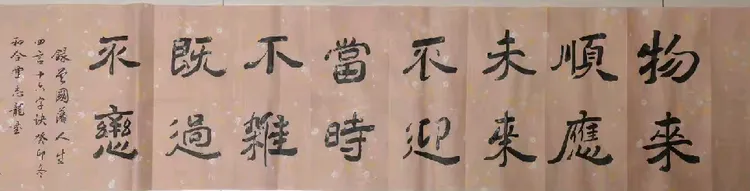 物来
順應
未来
不迎
當時
不雜
既過
不戀
錄曾國藩人生
四言十六字訣癸卯冬